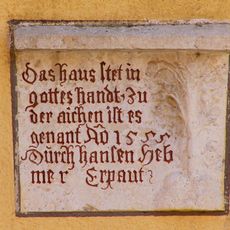 Das haus stet in
gottes handt. Zu
der aichen ist es
genant A͞o 1555
Durch hansen Heb
mer Erpaut